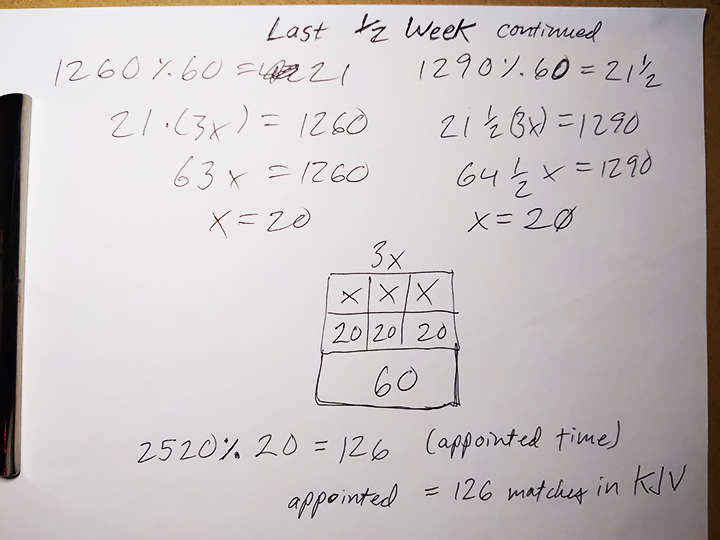 Last 1/2 Week continued
1260 % 60 = 21
1290 % 60 = 21 1/2
21 · (3x) = 1260
21 1/2 (3x) = 1290
63x = 1260
64 1/2 x = 1290
x = 20
x = 20
3x
x x x
20 20 20
60
2520 % 20 = 126 (appointed time)
appointed = 126 matches in KJV